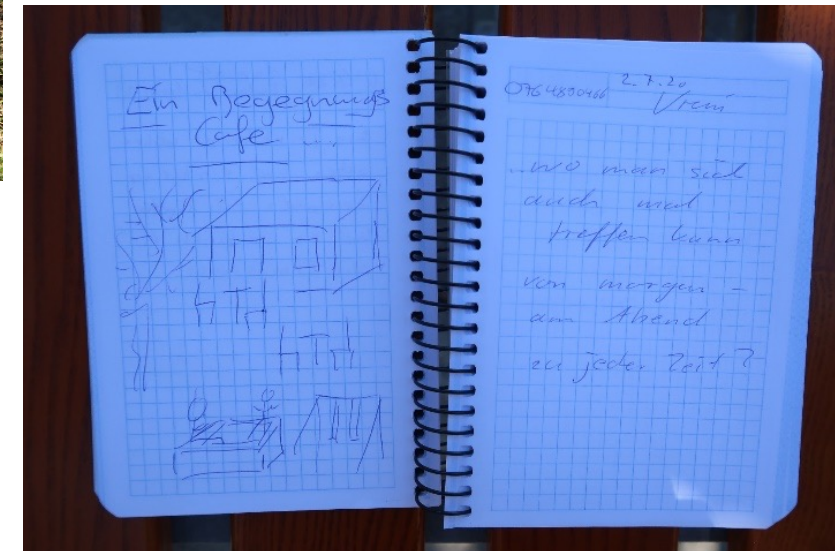 Ein Begegnungs
Cafe ...
2.7.20
Vreni
...wo man sich
auch mal
treffen kann
von morgen -
am Abend
zu jeder Zeit?